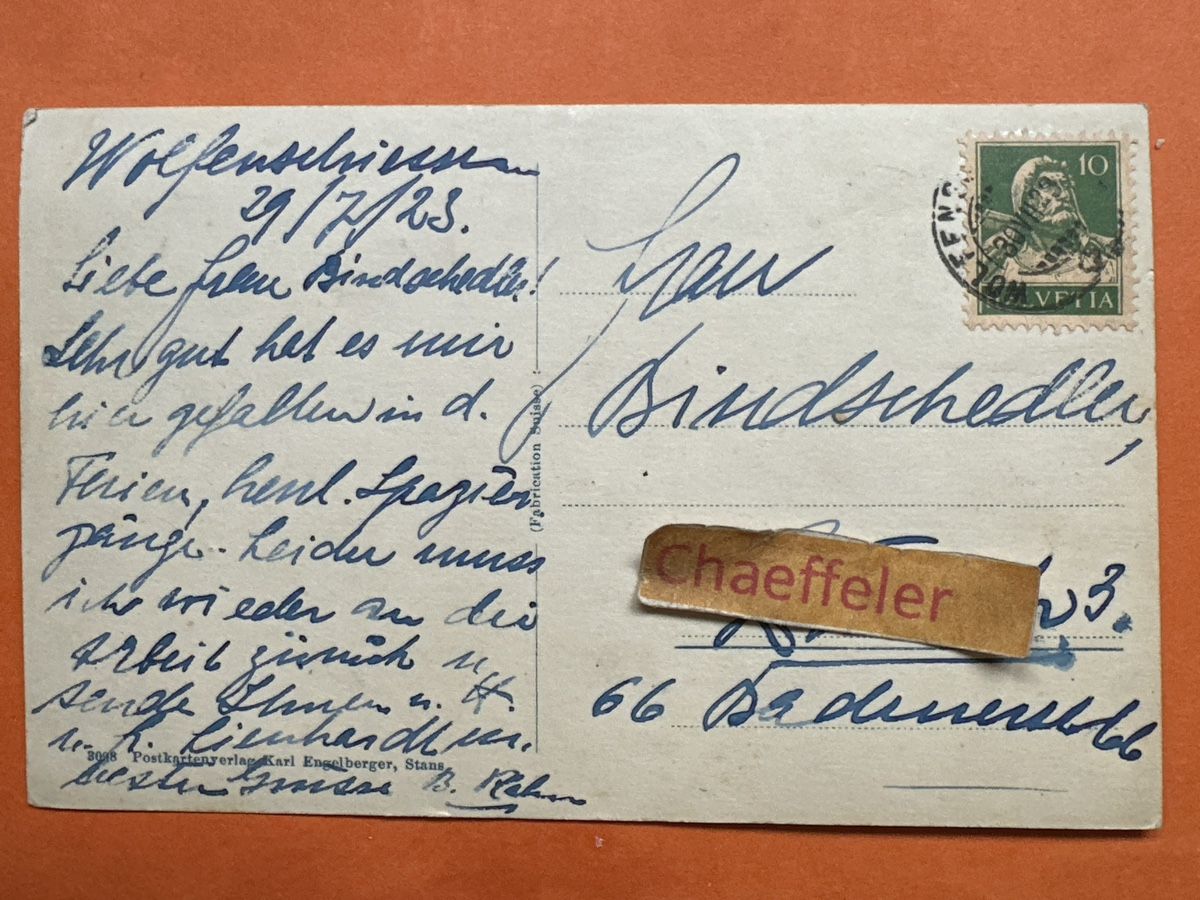 Wolfenschiessen
29/7/23.
Liebe Frau Bindschedler!
Sehr gut hat es mir
hier gefallen in d.
Ferien, herrl. Spazier
gänge. Leider muss
ich wieder an die
Arbeit zurück u.
sende Ihnen u. H.
u. F. Lienhardt m.
besten Grüsse B.
3098 Postkartenverlag Karl Engelberger, Stans
(Fabrication Suisse)
10
HELVETIA
WOLFENS
Frau
Bindschedler,
Chaeffeler
3.
66 Badenerstr. 66